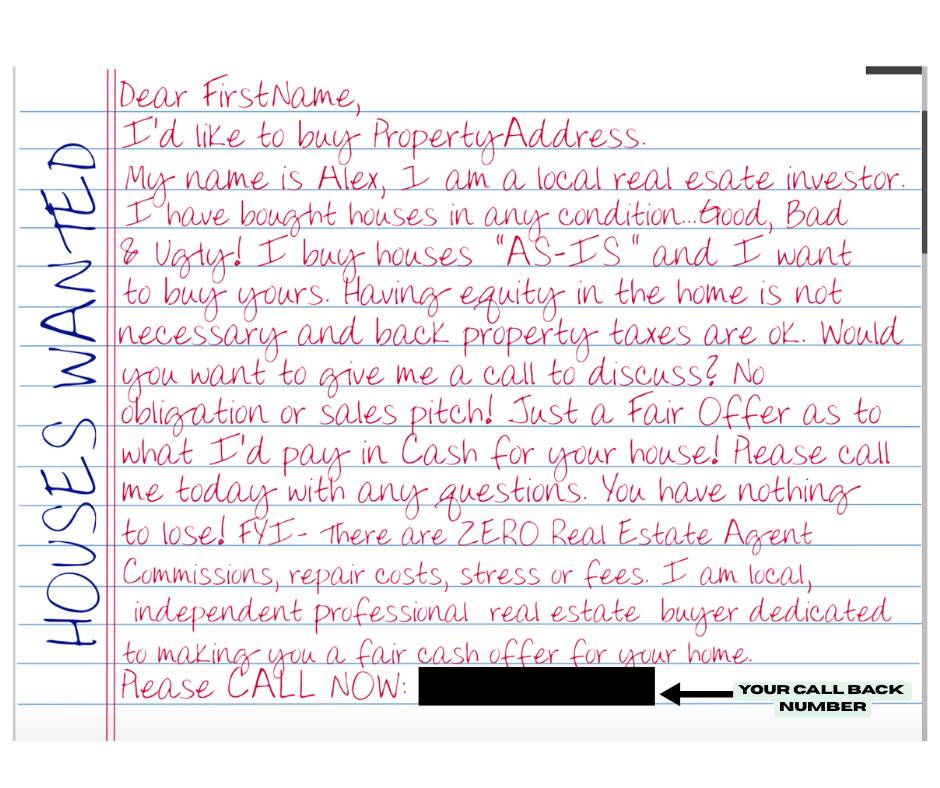 HOUSES WANTED
Dear FirstName,
I'd like to buy PropertyAddress.
My name is Alex, I am a local real esate investor.
I have bought houses in any condition...Good, Bad
& Ugly! I buy houses "AS-IS" and I want
to buy yours. Having equity in the home is not
necessary and back property taxes are ok. Would
you want to give me a call to discuss? No
obligation or sales pitch! Just a Fair Offer as to
what I'd pay in Cash for your house! Please call
me today with any questions. You have nothing
to lose! FYI- There are ZERO Real Estate Agent
Commissions, repair costs, stress or fees. I am local,
independent professional real estate buyer dedicated
to making you a fair cash offer for your home.
Please CALL NOW:
YOUR CALL BACK
NUMBER